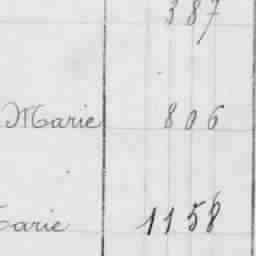 387
Marie 806
Marie 1158